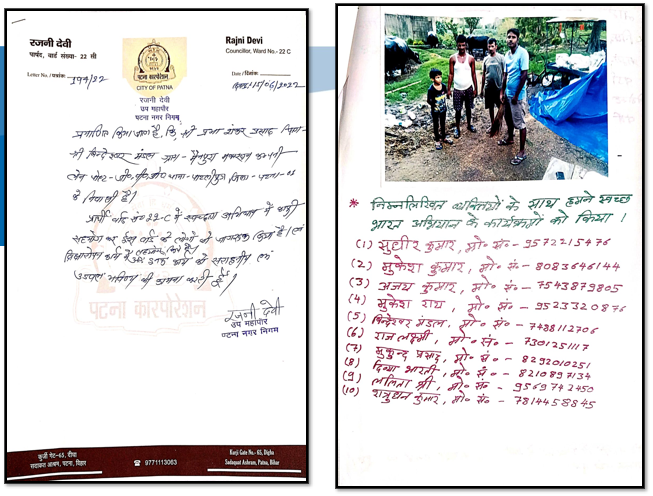 रजनी देवी
पार्षद, वार्ड संख्या- 22 सी
Rajni Devi
Councillor, Ward No.- 22 C
Letter No./पत्रांक: 194/22
पटना कारपोरेशन
CITY OF PATNA
Date/दिनांक
रजनी देवी
उप महापौर
पटना नगर निगम
प्रमाणित किया जाता है, कि श्री प्रभा शंकर प्रसाद पिता-
श्री बिन्देश्वर मंडल ग्राम- मैनपुरा
थाना- पाटलीपुत्र जिला- पटना-
के निवासी है।
वार्ड सं० 22-C में स्वच्छता अभियान में
सहयोग कर इस वार्ड के लोगों को जागरूक किया है।
उज्ज्वल भविष्य की कामना करती हूँ।
पटना कारपोरेशन
रजनी देवी
उप महापौर
पटना नगर निगम
कुर्जी गेट-65, दीघा
सदाकत आश्रम, पटना, बिहार
9771113063
Kurji Gate No.- 65, Digha
Sadaqat Ashram, Patna, Bihar
* निम्नलिखित व्यक्तियों के साथ हमने स्वच्छ
भारत अभियान के कार्यक्रमों को किया।
(1) सुधीर कुमार, मो० सं०- 9572215476
(2) मुकेश कुमार, मो० सं०- 8083646144
(3) अजय कुमार, मो० सं०- 7543879805
(4) मुकेश राय, मो० सं०- 9523320876
(5) बिन्देश्वर मंडल, मो० सं०- 7488112706
(6) राज लक्ष्मी, मो० सं०- 7301251117
(7) मुकुन्द प्रसाद, मो० सं०- 8292010251
(8) दिव्या भारती, मो० सं०- 8210897134
(9) ललिता श्री, मो० सं०- 9569742450
(10) शत्रुधन कुमार, मो० सं०- 7814458845